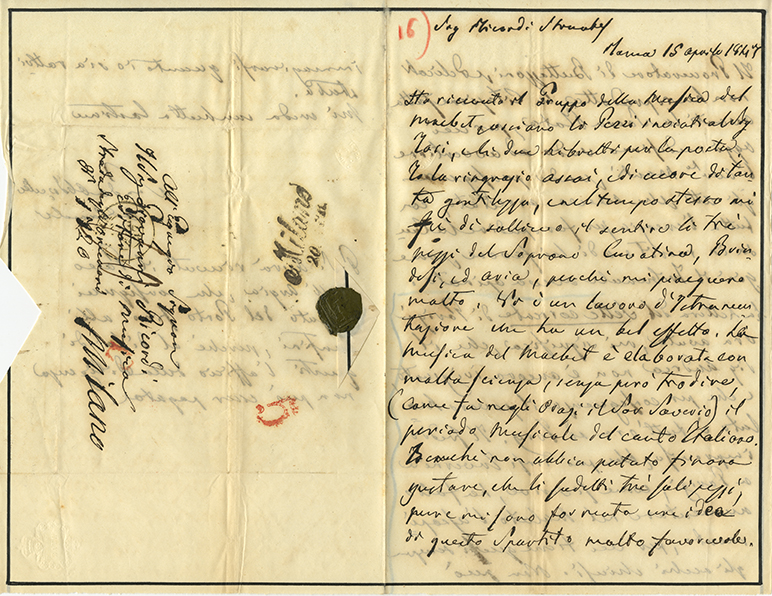 16)
Sig Ricordi Stimatis
Roma 15 aprile 1847
Ho ricevuto il Gruppo della Musica del
Macbet, ossiano li Pezzi inviati al Sig
Tosi, e li due libretti per la posta.
Io la ringrazio assai, e di cuore di tan
ta gentilezza, e nel tempo stesso mi
fu di sollievo, il sentire li tré
pezzi del Soprano Cavatina, Brin
desi, ed aria, perché mi piacquero
molto. Vi è un lavoro d'Istrumen
tazione che ha un bel effetto. La
Musica del Macbet è elaborata con
molta scienza, senza peró tradire,
(come fa negli Orazj il Sor Saverio) il
periodo Musicale del canto Italiano.
Benché non abbia potuto finora
gustare, che li sudetti tré soli pezzi,
pure mi sono formata una idea
di questo Spartito molto favorevole.
All Egregio Signore
Il Sig Giovanni Ricordi
Editore di Musica
N° 1720
Milano
Milano
20